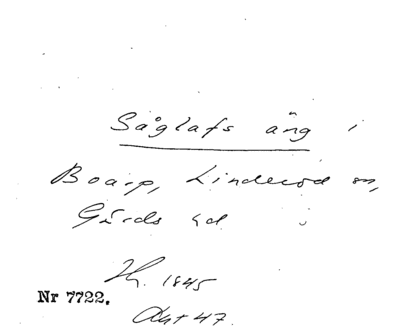 Såglafs äng i
Boarp, Linderöd sn,
Gärds hd.
H. 1845
Nr 7722.
Akt 47.